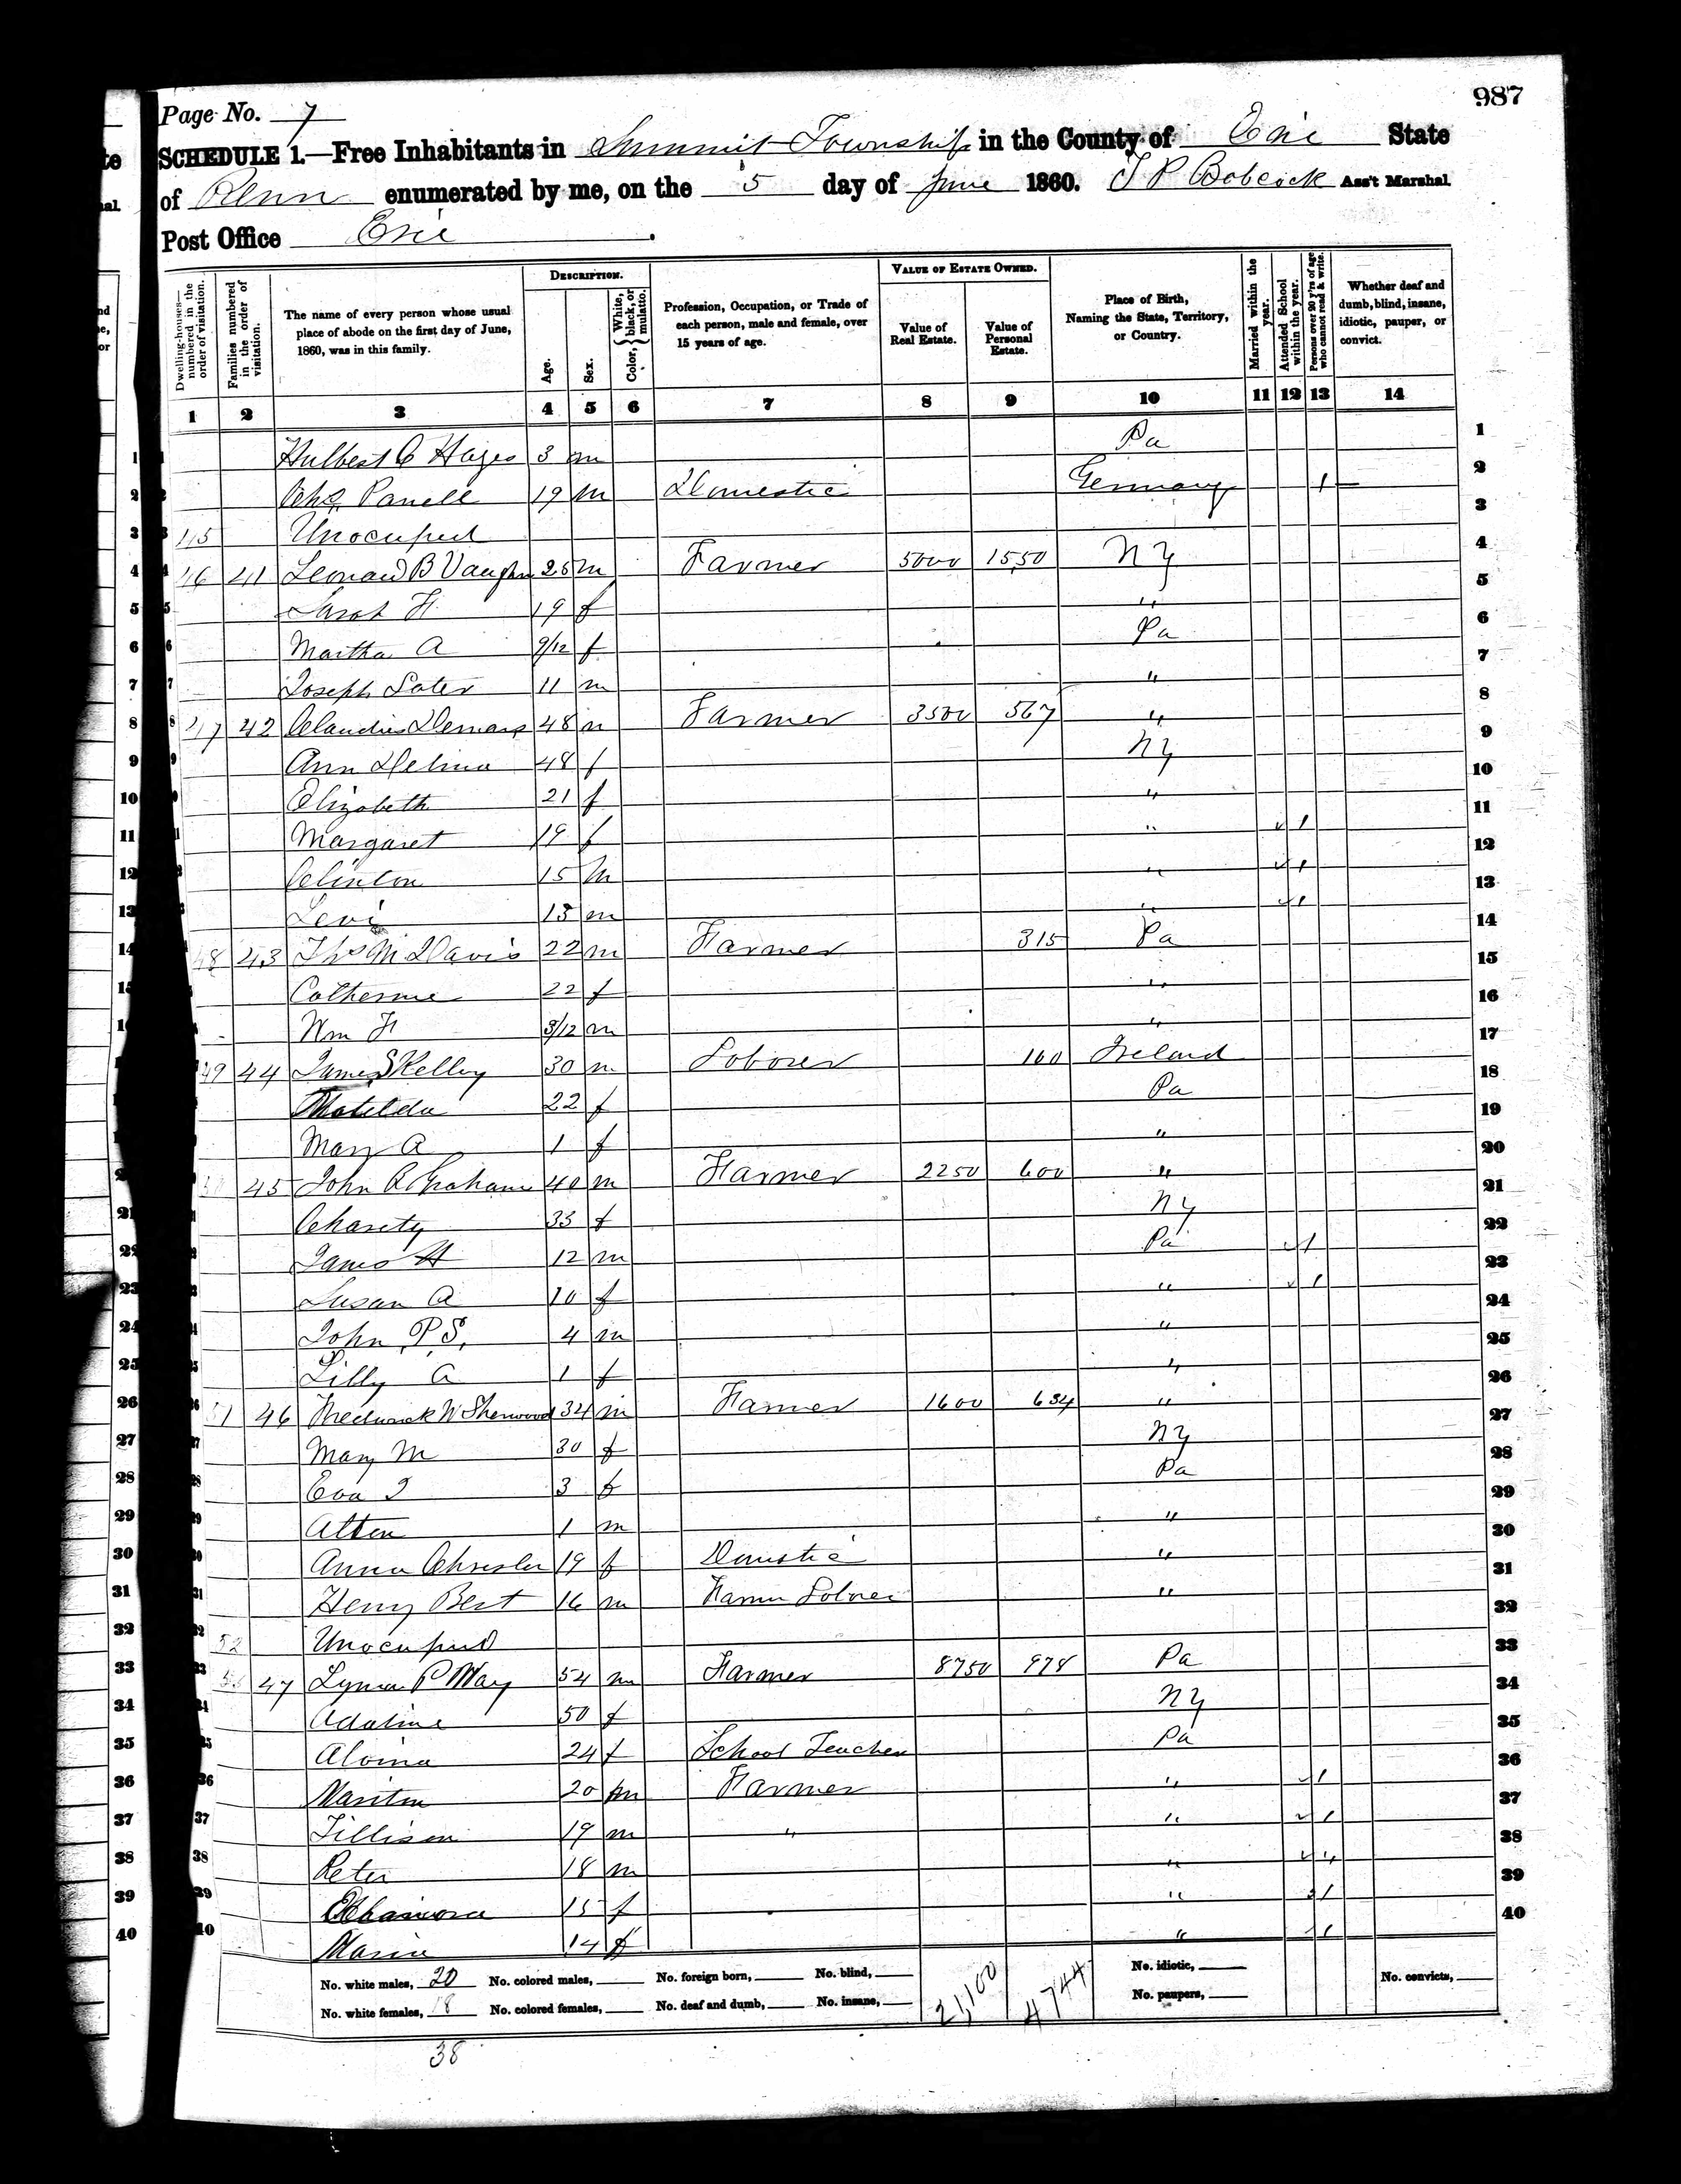 987
Page No. 7
SCHEDULE 1.—Free Inhabitants in Summit Township in the County of Erie State
of Penn enumerated by me, on the 5 day of June 1860. J P Bobcock Ass't Marshal
Post Office Erie.
Dwelling-houses—numbered in the order of visitation. Families numbered in the order of visitation. The name of every person whose usual place of abode on the first day of June, 1860, was in this family. DESCRIPTION. Age. Sex. Color, { White, black, or mulatto. Profession, Occupation, or Trade of each person, male and female, over 15 years of age. VALUE OF ESTATE OWNED. Value of Real Estate. Value of Personal Estate. Place of Birth, Naming the State, Territory, or Country. Married within the year. Attended School within the year. Persons over 20 y'rs of age who cannot read & write. Whether deaf and dumb, blind, insane, idiotic, pauper, or convict.
1 2 3 4 5 6 7 8 9 10 11 12 13 14
1 Hulbert C Hayes 3 m Pa 1
2 19 m Domestic Germany 1 2
3 45 Unocupied 3
4 46 41 Leonard B Vaughn 28 m Farmer 5000 1550 N Y 4
5 Sarah H 19 f " 5
6 Martha A 9/12 f Pa 6
7 Joseph Later 11 m " 7
8 47 42 Claudius Demars 48 m Farmer 3500 567 " 8
9 Ann Delina 48 f N Y 9
10 Elizabeth 21 f " 10
11 Margaret 19 f " 1 11
12 Clinton 15 m " 1 12
13 Levi 13 m " 1 13
14 48 43 Ths M Davis 22 m Farmer 315 Pa 14
15 Catherine 22 f " 15
16 Wm H 3/12 m " 16
17 49 44 James S Kelley 30 m Laborer 160 Ireland 17
18 Matilda 22 f Pa 18
19 Mary A 1 f " 19
20 50 45 John A Graham 40 m Farmer 2250 600 " 20
21 Charety 33 f N Y 21
22 James H 12 m Pa 1 22
23 Susan A 10 f " 1 23
24 John P S, 4 m " 24
25 Lilly A 1 f " 25
26 51 46 Frederick W Sherwood 34 m Farmer 1600 634 " 26
27 Mary M 30 f N Y 27
28 Eva I 3 f Pa 28
29 Alten 1 m " 29
30 Anna Chrisler 19 f Domestic " 30
31 Henry Best 16 m Farm Laborer " 31
32 52 Unocupied 32
33 53 47 Lyman P May 54 m Farmer 8750 978 Pa 33
34 Adaline 50 f N Y 34
35 Alvina 24 f School Teacher Pa 35
36 20 m Farmer " 1 36
37 Tillison 19 m " " 1 37
38 Peter 18 m " " 38
39 15 f " 1 39
40 Maria 14 f " 1 40
No. white males, 20 No. colored males, No. foreign born, No. blind, 21,100 4744 No. idiotic, No. convicts,
No. white females, 18 No. colored females, No. deaf and dumb, No. insane, No. paupers,
38